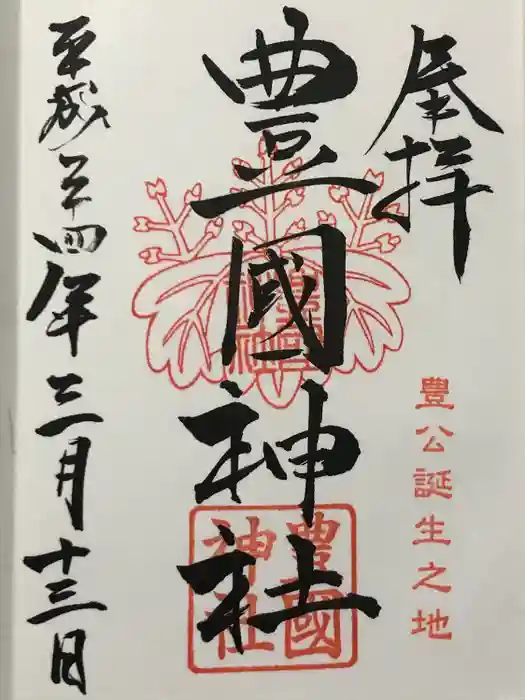 奉拝
豊公誕生之地
豊國神社
豊國
神社
平成廿四年三月十三日